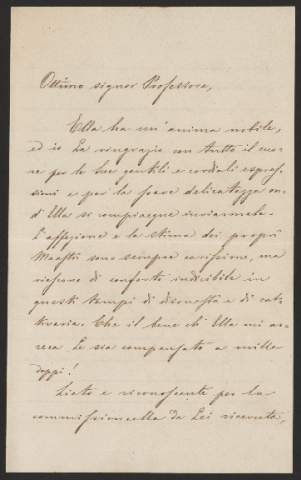 Ottimo signor Professore,
Ella ha un'anima nobile,
ed io La ringrazio con tutto il cuo-
re per le Sue gentili e cordiali espres-
sioni e per la soave delicatezza on-
d'Ella si compiacque inviarmele.
L'affezione e la stima dei proprî
Maestri sono sempre carissime, ma
riescono di conforto indicibile in
questi tempi di disonestà e di cat-
tiveria. Che il bene ch'Ella mi ar-
reca Le sia compensato a mille
doppi!
Lieto e riconoscente per la
commissioncella da Lei ricevuta,